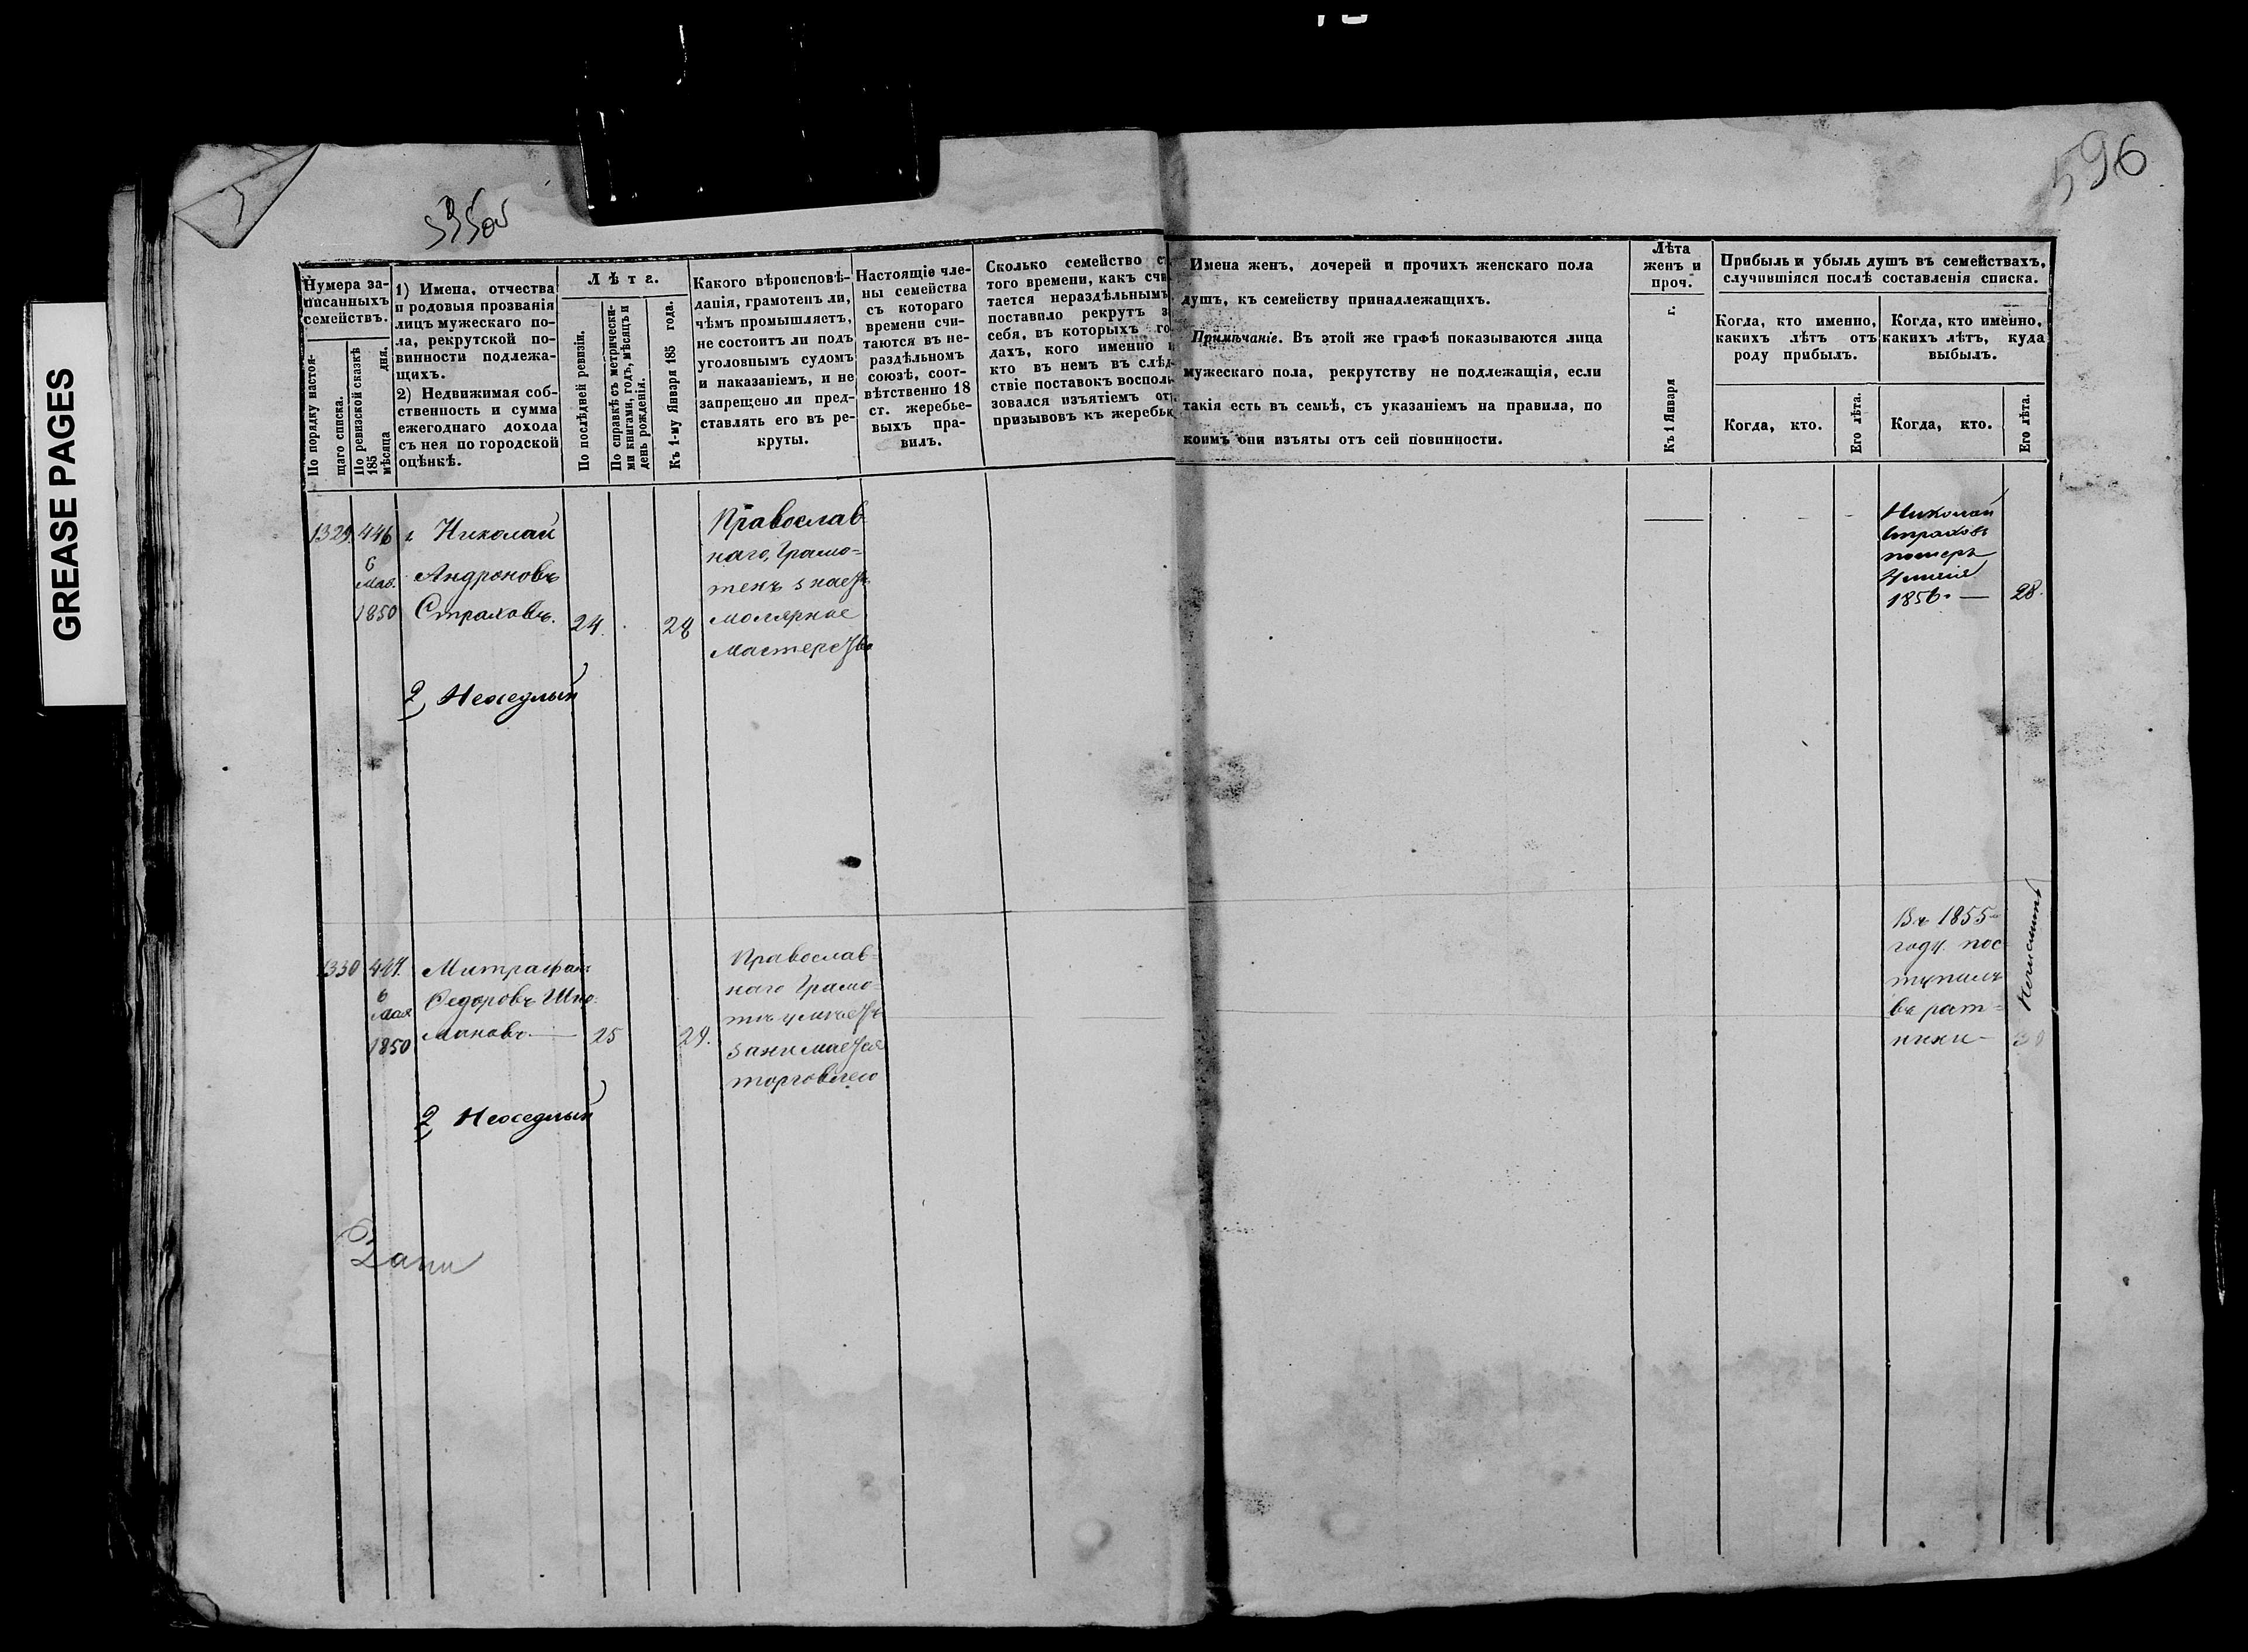 GREASE PAGES
596
Нумера за-
писанныхъ
семействъ.
По порядку настоя-
щаго списка.
По ревизской сказкѣ
185
мѣсяца дня.
1) Имена, отчества
и родовыя прозванія
лицъ мужескаго по-
ла, рекрутской по-
винности подлежа-
щихъ.
2) Недвижимая соб-
ственность и сумма
ежегоднаго дохода
съ нея по городской
оцѣнкѣ.
Лѣта.
По послѣдней ревизіи.
По справкѣ съ метрически-
ми книгами, годъ, мѣсяцъ и
день рожденія.
Къ 1-му Января 185 года.
Какого вѣроисповѣ-
данія, грамотенъ ли,
чѣмъ промышляетъ,
не состоитъ ли подъ
уголовнымъ судомъ
и наказаніемъ, и не
запрещено ли пред-
ставлять его въ ре-
круты.
Настоящіе чле-
ны семейства
съ котораго
времени счи-
таются въ не-
раздѣльномъ
союзѣ, соот-
вѣтственно 18
ст. жеребье-
выхъ пра-
вилъ.
Сколько семейство с
того времени, какъ счи
тается нераздѣльнымъ,
поставило рекрутъ з
себя, въ которыхъ го-
дахъ, кого именно и
кто въ немъ въ слѣд-
ствіе поставокъ восполь-
зовался изъятіемъ от
призывовъ къ жеребью
Имена женъ, дочерей и прочихъ женскаго пола
душъ, къ семейству принадлежащихъ.
Примѣчаніе. Въ этой же графѣ показываются лица
мужескаго пола, рекрутству не подлежащія, если
такія есть въ семьѣ, съ указаніемъ на правила, по
коимъ они изъяты отъ сей повинности.
Лѣта
женъ и
проч.
Къ 1 Января г.
Прибыль и убыль душъ въ семействахъ,
случившіяся послѣ составленія списка.
Когда, кто именно,
какихъ лѣтъ отъ
роду прибылъ.
Когда, кто именно,
какихъ лѣтъ, куда
выбылъ.
Когда, кто.
Его лѣта.
Когда, кто.
Его лѣта.
1329. 446
6
Мая.
1850
1. Николай
Андроновъ
Страховъ.
24.
28
Православ
наго, Грамо-
тенъ знаетъ
молярное
Мастерство
Николай
Страховъ
померъ
1856.
28.
2, Неоседлый
1330 447.
6
Мая
1850
Митрофанъ
Федоровъ
25
29.
Православ-
наго Грамо-
тѣ умѣетъ
занимается
торговлею
Въ 1855
году пос
тупилъ
въ рат-
ники
30
2, Неоседлый